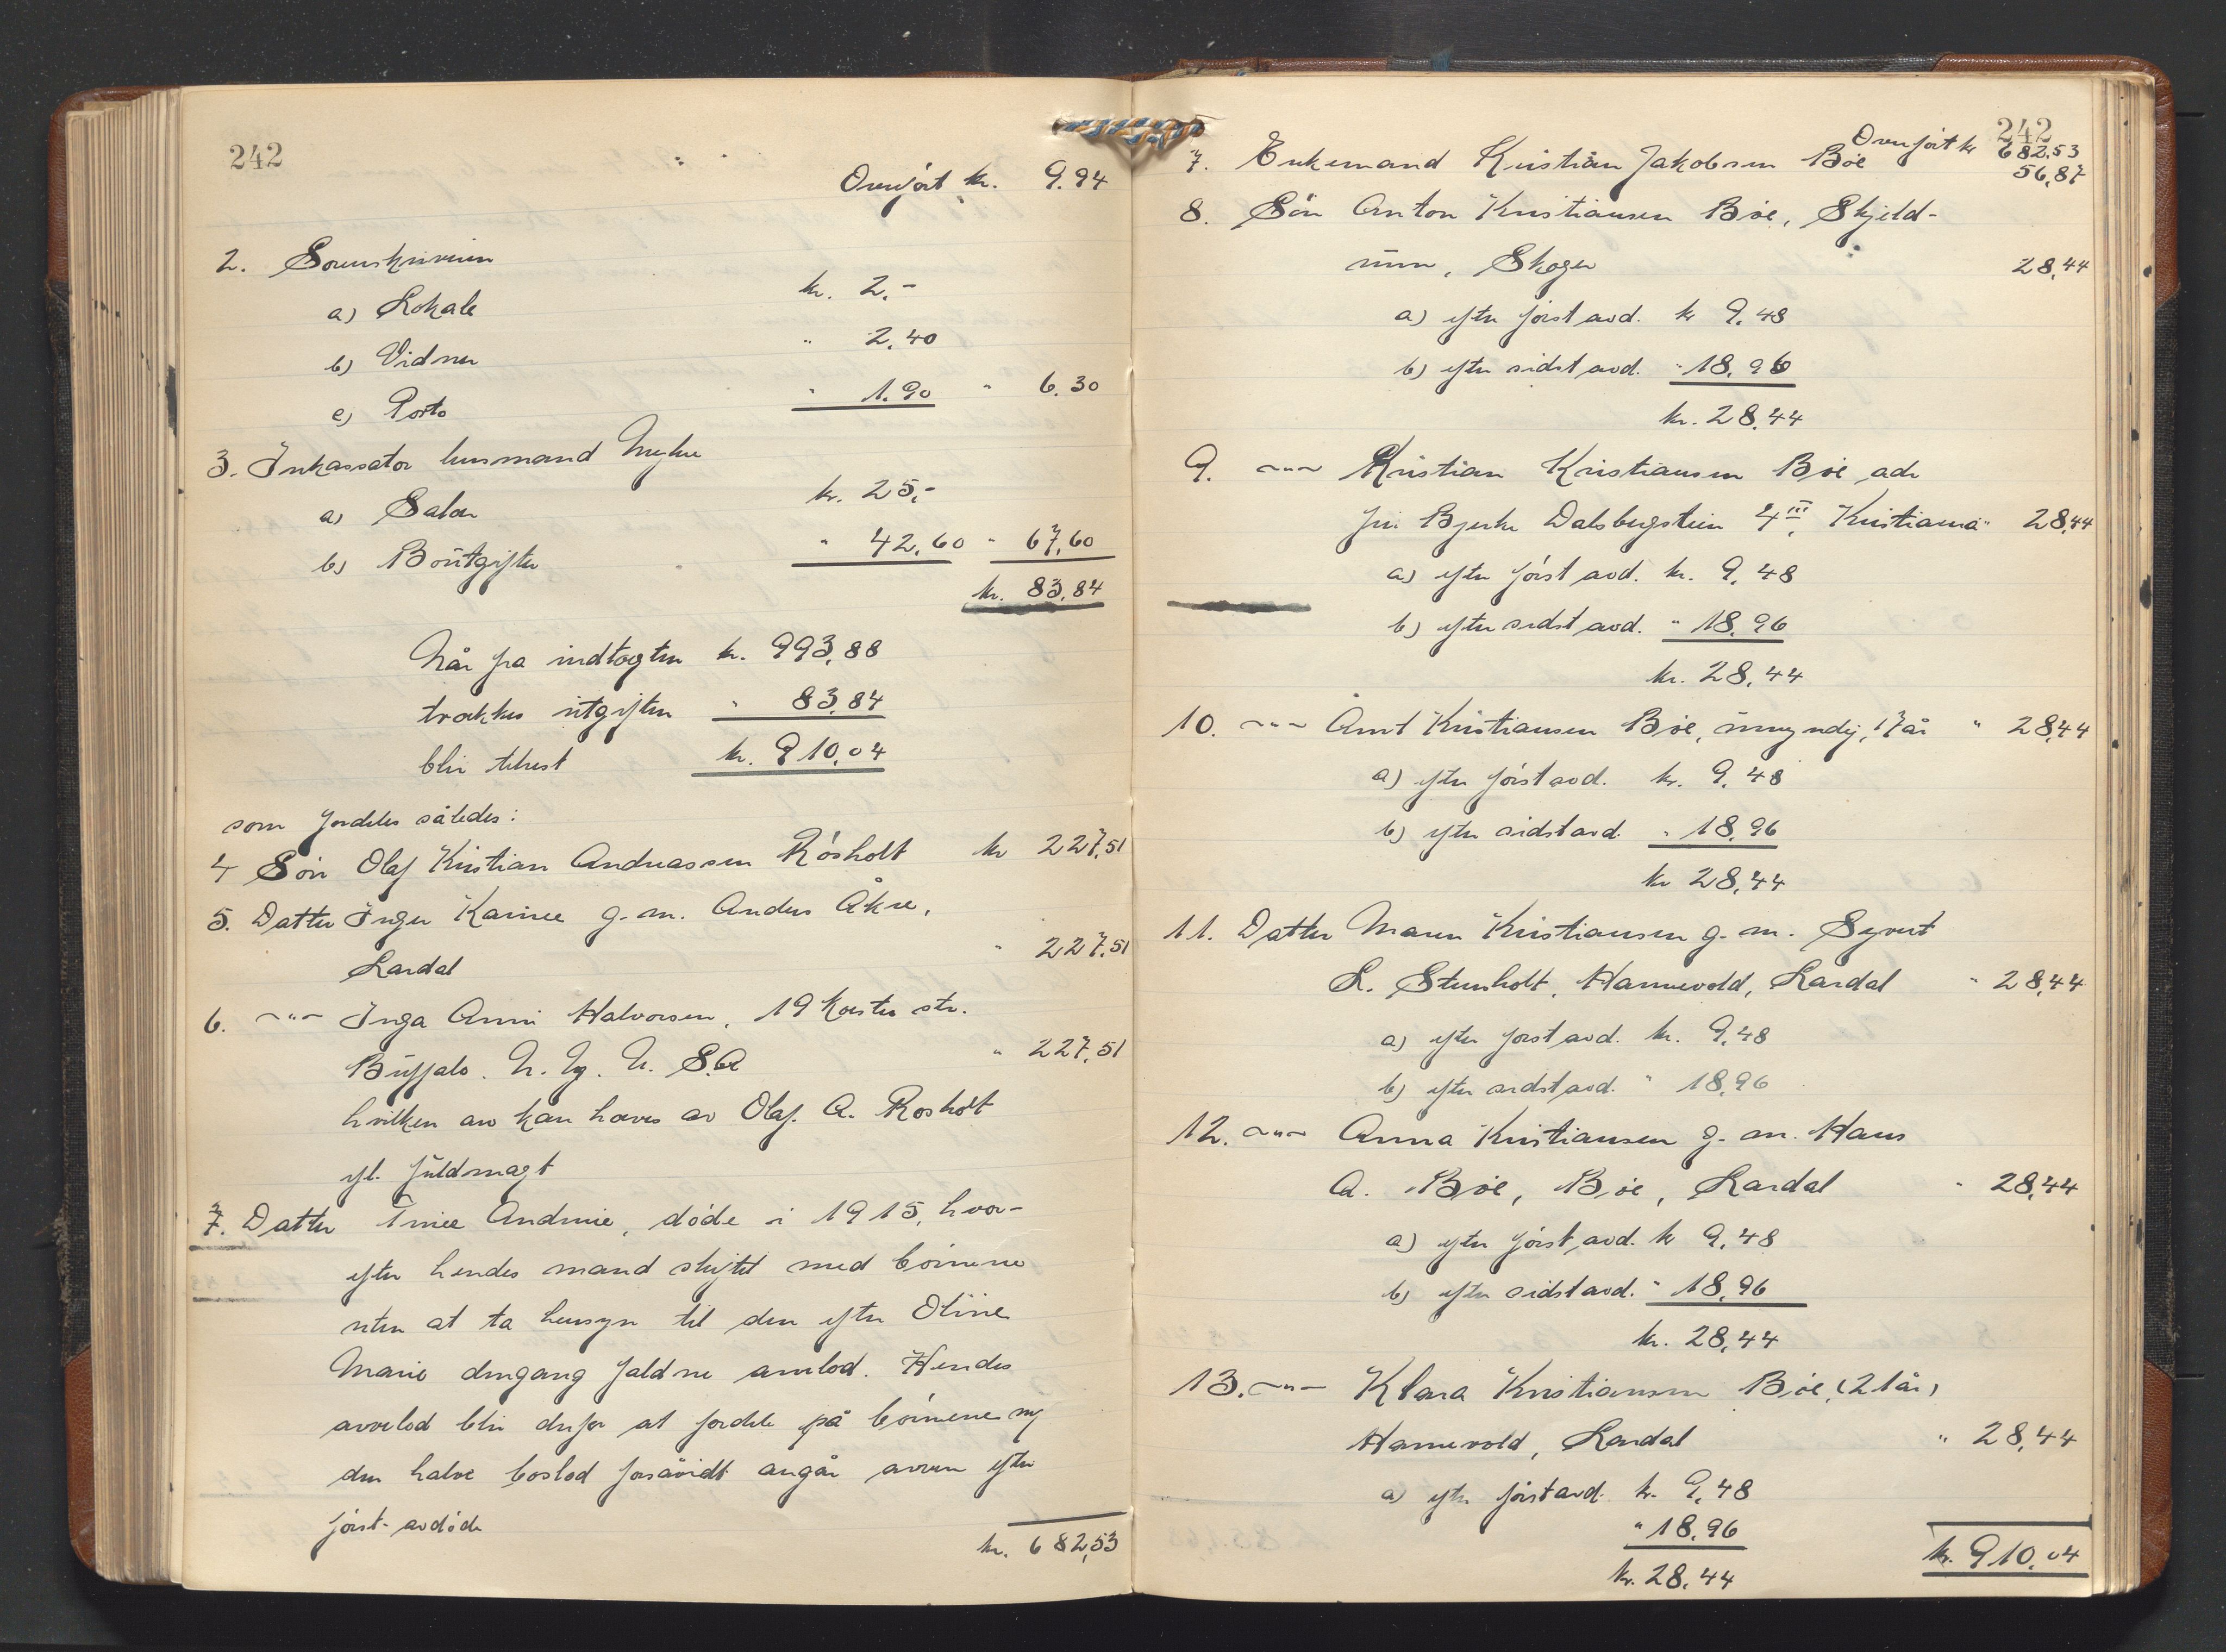 242
Overført kr. 9.94
2. Sorenskriveren
a) Lokale kr. 2,-
b) Vidner " 2,40
c) Porto " 1.90 " 6.30
3. Inkassator lensmand Myhre
a) Salær kr. 25,-
b) Boutgifter " 42,60 " 67,60
kr. 83,84
Når fra indtægten kr. 993,88
trækkes utgiften " 83,84
blir tilrest kr. 910,04
som fordeles således:
4 Søn Olaf Kristian Andreassen Røsholt kr 227,51
5. Datter Inger Karine g. m. Anders Åkre,
Lardal " 227,51
6. -"- Inga Anni Halvorsen, 19 Koester str.
Buffalo. N. Y. U. S. A " 227,51
hvilken arv kan hæves av Olaf A. Rosholt
ifl. fuldmagt
7. Datter Trine Andrine, døde i 1915, hvor-
efter hendes mand skiftet med børnene
uten at ta hensyn til den efter Oline
Marie dengang faldne arvelod. Hendes
arvelod blir derfor at fordele på børnene og
den halve boslod forsåvidt angår arven efter
først-avdøde
kr. 682,53
242
Overført kr 682,53
7. Enkemand Kristian Jakobsen Bøe 56,87
8. Søn Anton Kristiansen Bøe, Skjeld-
rum, Skoger 28,44
a) efter først avd. kr 9,48
b) efter sidst avd. " 18,96
kr. 28,44
9. -"- Kristian Kristiansen Bøe adr
frk Bjerke Dalsbergstien 4 III, Kristiania " 28,44
a) efter først avd. kr. 9,48
b) efter sidst avd. " 18,96
kr. 28,44
10. -"- Arnt Kristiansen Bøe, umyndig, 17 år " 28,44
a) efter først avd. kr. 9,48
b) efter sidst avd. " 18,96
kr 28,44
11. Datter Maren Kristiansen g. m. Syvert
L. Stensholt, Hannevold, Lardal " 28,44
a) efter først avd. kr. 9,48
b) efter sidst avd. " 18,96
12. -"- Anna Kristiansen g. m. Hans
A. Bøe, Bøe, Lardal " 28,44
a) efter først avd. kr 9,48
b) efter sidst avd. " 18,96
kr. 28,44
13. -"- Klara Kristiansen Bøe, (21 år)
Hannevold, Lardal " 28,44
a) efter først avd. kr. 9,48
" 18,96
kr. 28,44
kr. 910,04